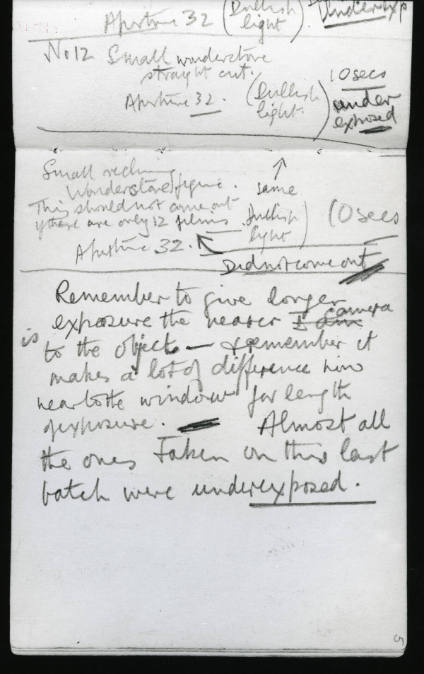 Aperture 32 (Dullish light) Underexp
No 12 Small wonderstone
straight cut. 10 secs
Aperture 32. (Dullish light) under
exposed
Small reclining
Wonderstone figure. same
This should not come out
if there are only 12 films dullish light) 10 secs
Aperture 32.
Did not come out
Remember to give longer
exposure the nearer I am camera
is to the object — & remember it
makes a lot of difference how
near to the window for length
of exposure. — Almost all
the ones Taken on this last
batch were underexposed.